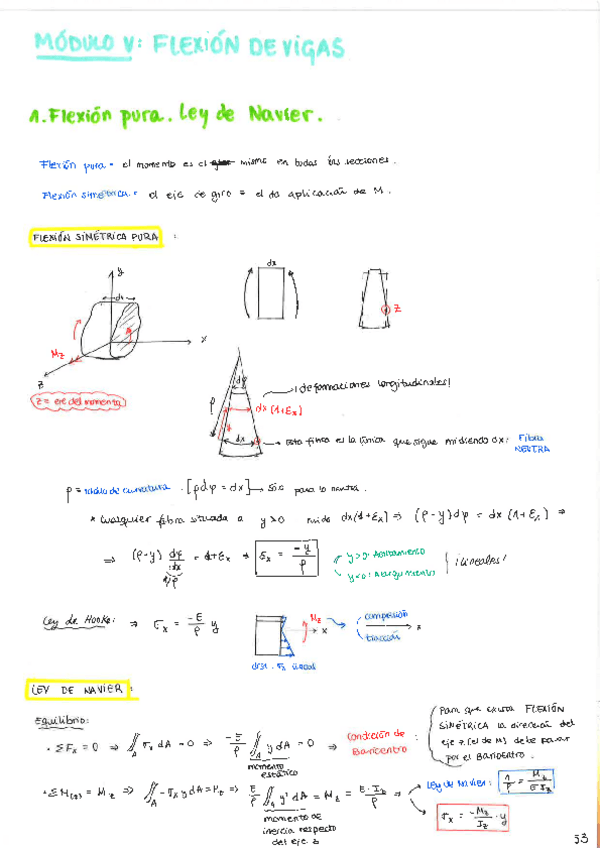 MÓDULO V: FLEXIÓN DE VIGAS
1. Flexión pura. Ley de Navier.
Flexión pura = el momento es el mismo en todas las secciones.
Flexión simétrica = el eje de giro = el de aplicación de M.
FLEXIÓN SIMÉTRICA PURA :
y
dx
x
Mz
z
z = eje del momento
dx
z
dφ
ρ
¡deformaciones longitudinales!
dx (1+εx)
dx
esta fibra es la única que sigue midiendo dx: Fibra NEUTRA
ρ = radio de curvatura. [ρdφ = dx] → sólo para la neutra.
* Cualquier fibra situada a y>0 mide dx(1+εx) ⇒ (ρ-y)dφ = dx (1+εx) ⇒
⇒ (ρ-y) dφ/dx = 1+εx ⇒ εx = -y/ρ
1/ρ
y>0: Acortamiento
y<0: Alargamiento
¡Lineales!
Ley de Hooke: ⇒ σx = -E/ρ y
Mz
x
compresión
tracción
x
dist. σx lineal
LEY DE NAVIER:
Equilibrio:
· ΣFx = 0 ⇒ ∬A σx dA = 0 ⇒ -E/ρ ∬A y dA = 0 ⇒ Condición de Baricentro :
momento estático
Para que exista FLEXIÓN SIMÉTRICA la dirección del eje z (el de M) debe pasar por el BARICENTRO.
· ΣM(z) = Mz ⇒ ∬A -σx y dA = Mz ⇒ E/ρ ∬A y² dA = Mz = E·Iz/ρ ⇒
momento de inercia respecto del eje z
Ley de Navier: 1/ρ = Mz/E Iz
σx = -Mz/Iz · y
53